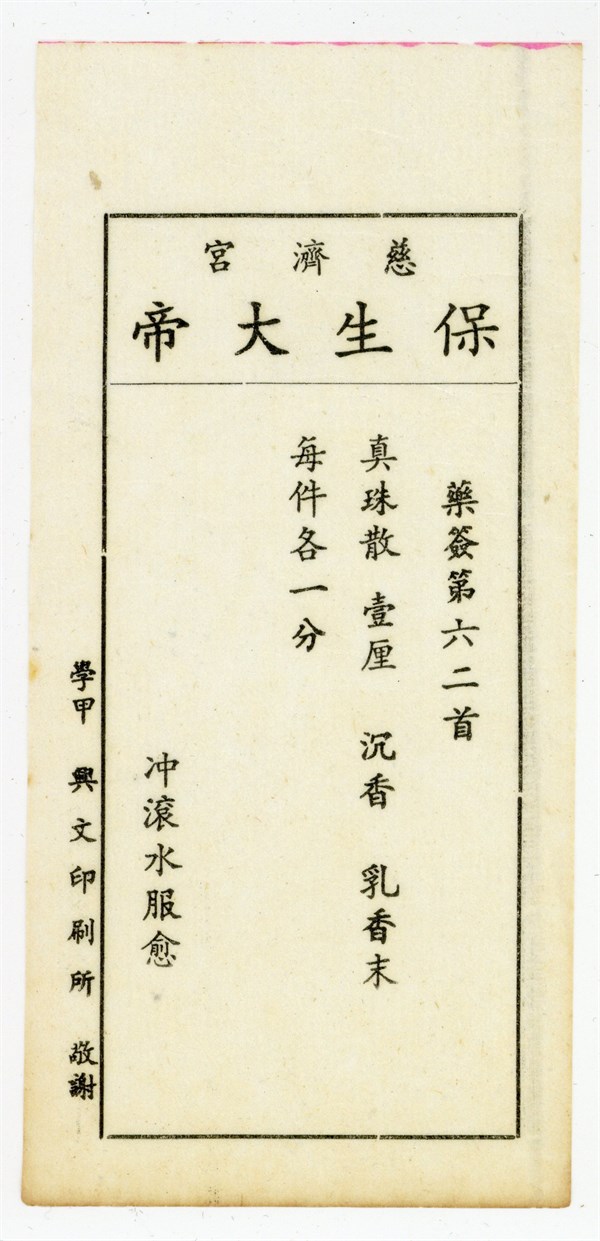 慈濟宮
保生大帝
藥簽第六二首
真珠散 壹厘 沉香 乳香末
每件各一分
冲滾水服愈
學甲 興文印刷所 敬謝